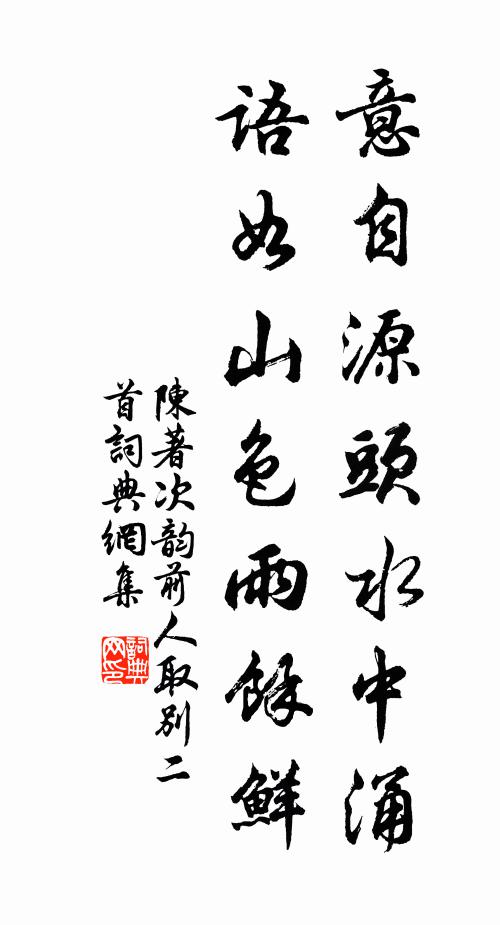 意自源頭水中涌
語如山色雨餘鮮
陳著次韵前人取別二
首詞典網集
詞典網印